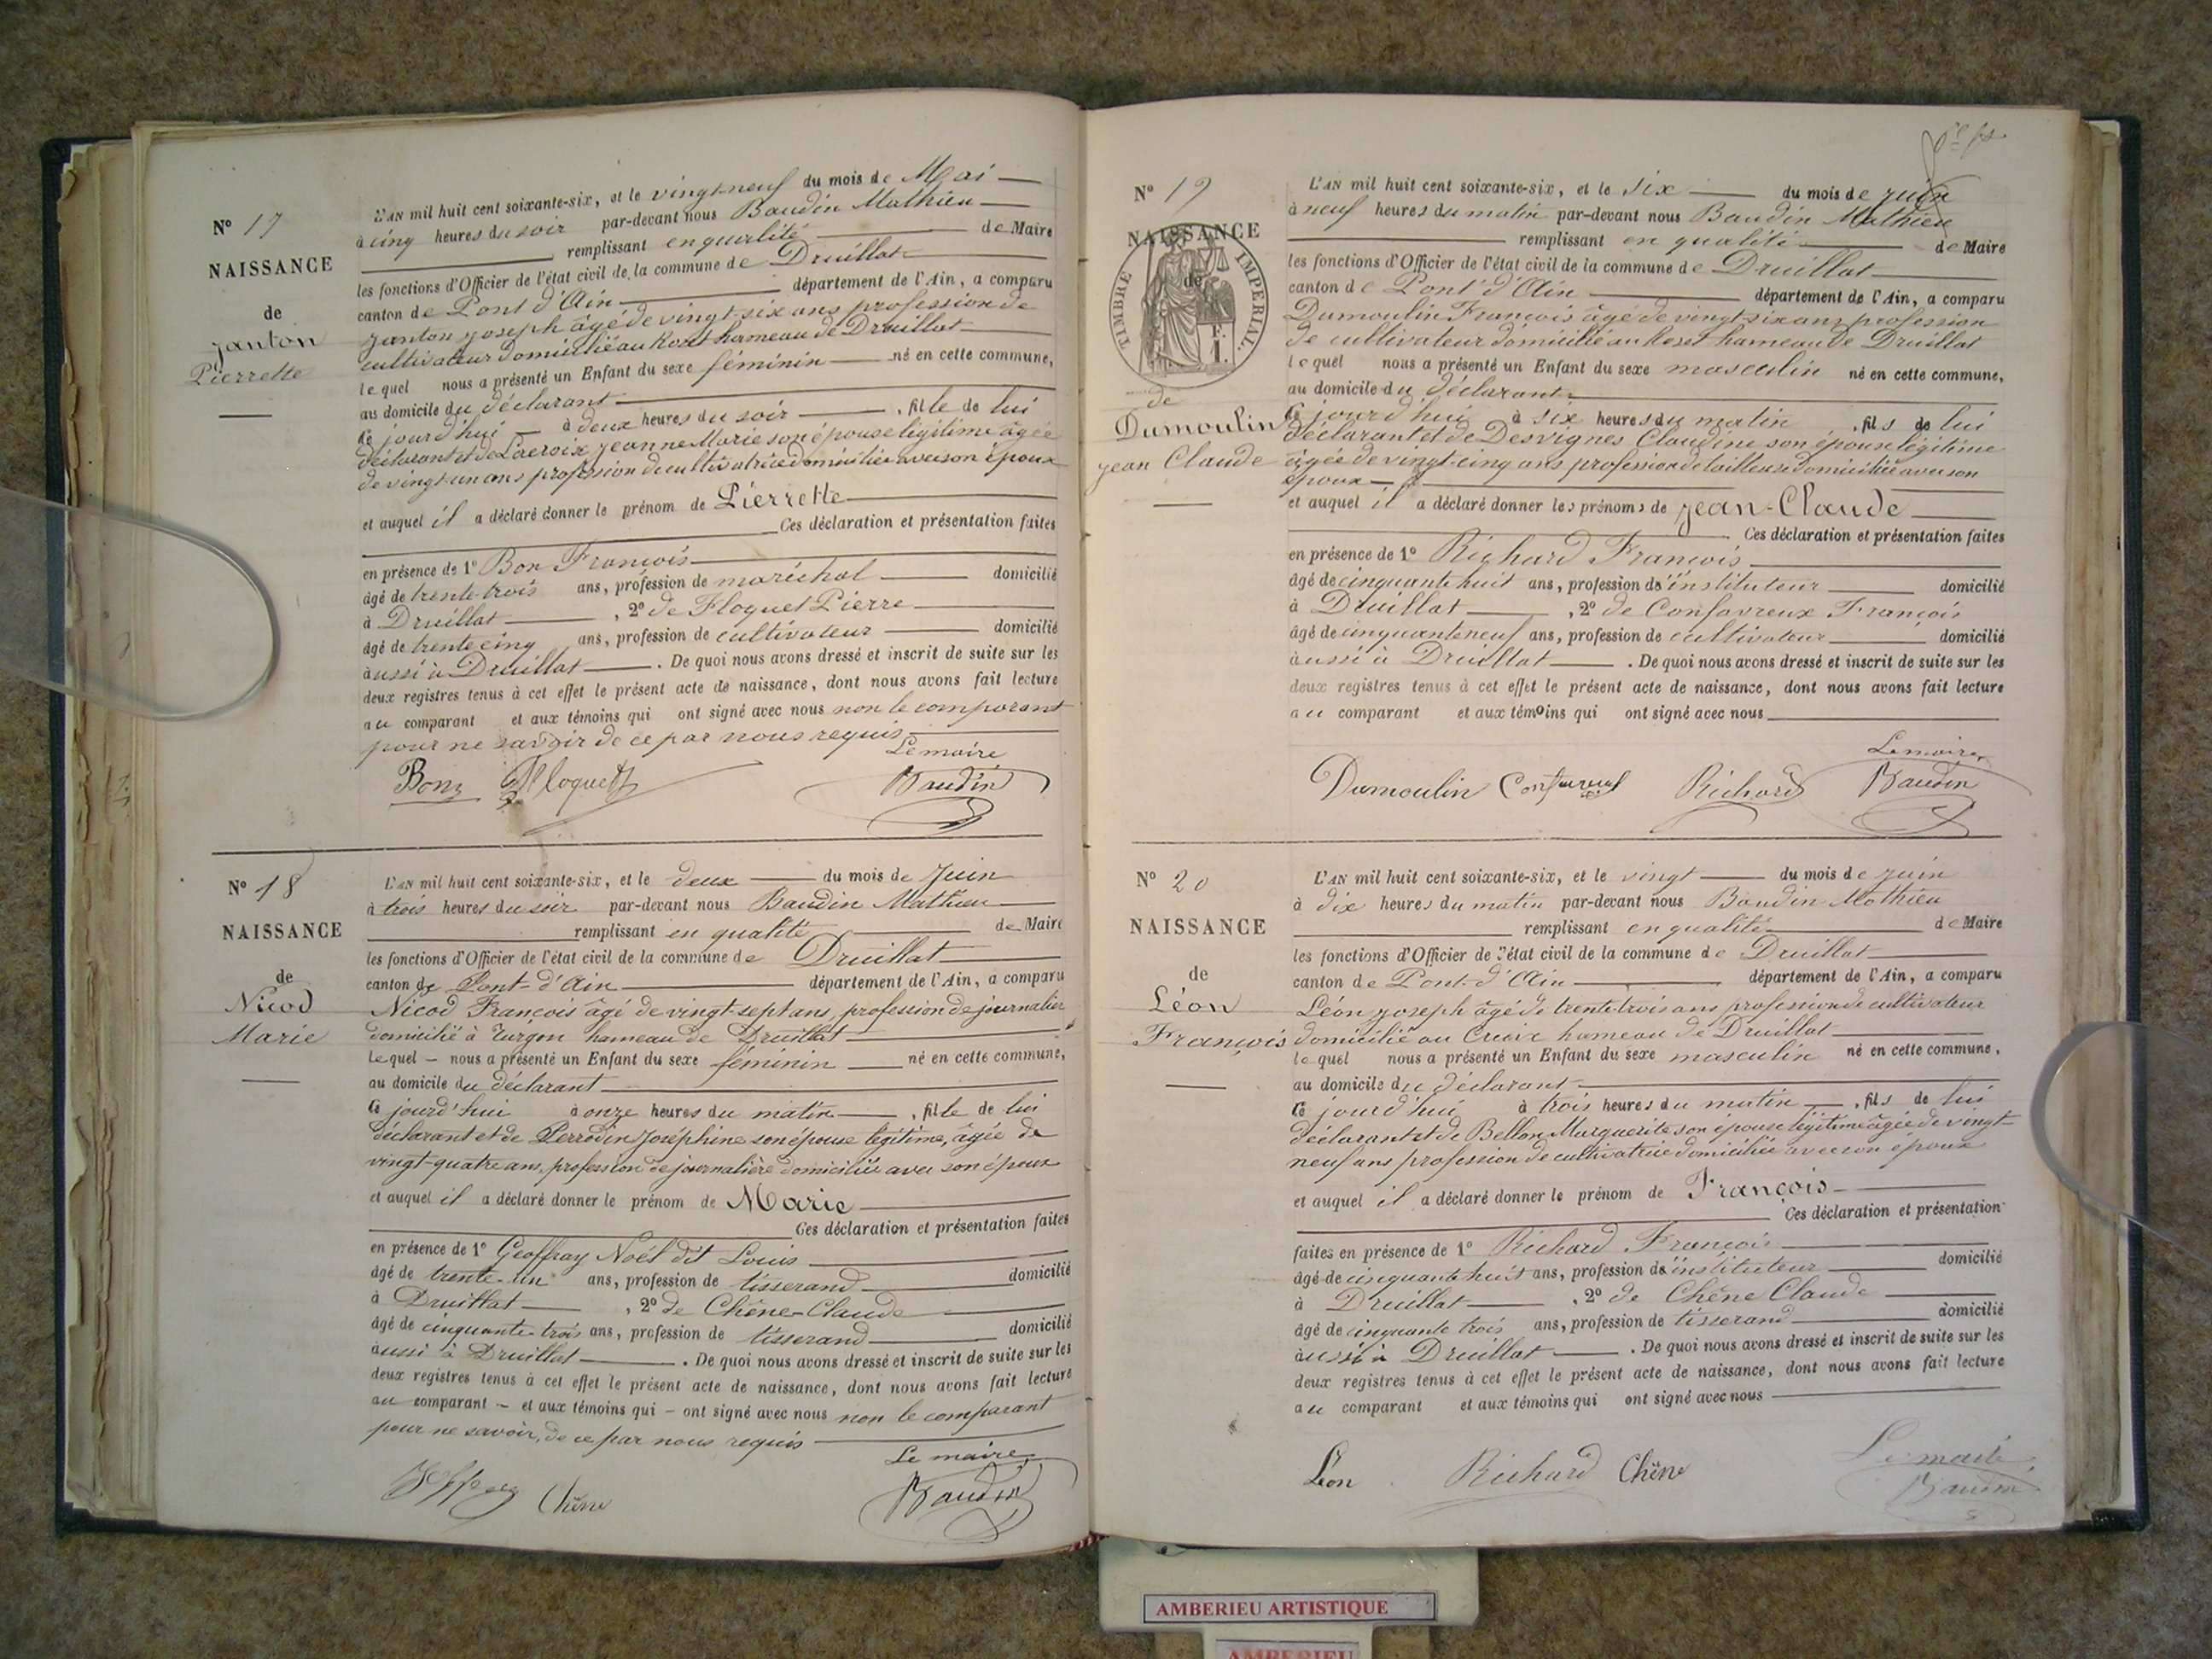 N° 17
NAISSANCE
de
Janton
Pierrette
L'AN mil huit cent soixante-six, et le vingt-neuf du mois de Mai
à cinq heures du soir par-devant nous Baudin Mathieu
remplissant en qualité de Maire
les fonctions d'Officier de l'état civil de la commune de Druillat
canton de Pont d'Ain département de l'Ain, a comparu
Janton Joseph âgé de vingt-six ans profession de
cultivateur domicilié au hameau de Druillat
lequel nous a présenté un Enfant du sexe féminin né en cette commune,
au domicile du déclarant
ce jourd'hui à deux heures du soir, fille de lui
déclarant et de Lacroix Jeanne Marie son épouse légitime âgée
de vingt-un ans profession de cultivatrice domiciliée avec son époux
et auquel il a déclaré donner le prénom de Pierrette
Ces déclaration et présentation faites
en présence de 1° Bon François
âgé de trente trois ans, profession de maréchal domicilié
à Druillat, 2° de Floquet Pierre
âgé de trente cinq ans, profession de cultivateur domicilié
aussi à Druillat. De quoi nous avons dressé et inscrit de suite sur les
deux registres tenus à cet effet le présent acte de naissance, dont nous avons fait lecture
au comparant et aux témoins qui ont signé avec nous non le comparant
pour ne savoir de ce par nous requis
Le maire
Bon Floquet Baudin
N° 18
NAISSANCE
de
Nicod
Marie
L'AN mil huit cent soixante-six, et le deux du mois de Juin
à trois heures du soir par-devant nous Baudin Mathieu
remplissant en qualité de Maire
les fonctions d'Officier de l'état civil de la commune de Druillat
canton de Pont-d'Ain département de l'Ain, a comparu
Nicod François âgé de vingt-sept ans, profession de journalier
domicilié à Turgon hameau de Druillat
lequel nous a présenté un Enfant du sexe féminin né en cette commune,
au domicile du déclarant
ce jourd'hui à onze heures du matin, fille de lui
déclarant et de Perrodin Joséphine son épouse légitime, âgée de
vingt-quatre ans, profession de journalière domiciliée avec son époux
et auquel il a déclaré donner le prénom de Marie
Ces déclaration et présentation faites
en présence de 1° Geoffray Noël dit Louis
âgé de trente-un ans, profession de tisserand domicilié
à Druillat, 2° de Chêne-Claude
âgé de cinquante-trois ans, profession de tisserand domicilié
aussi à Druillat. De quoi nous avons dressé et inscrit de suite sur les
deux registres tenus à cet effet le présent acte de naissance, dont nous avons fait lecture
au comparant - et aux témoins qui - ont signé avec nous non le comparant
pour ne savoir, de ce par nous requis
Le maire
Chêne Baudin
N° 19
NAISSANCE
TIMBRE IMPERIAL
de
de
Dumoulin
Jean Claude
L'AN mil huit cent soixante-six, et le six du mois de Juin
à neuf heures du matin par-devant nous Baudin Mathieu
remplissant en qualité de Maire
les fonctions d'Officier de l'état civil de la commune de Druillat
canton de Pont d'Ain département de l'Ain, a comparu
Dumoulin François âgé de vingt-six ans profession
de cultivateur domicilié au hameau de Druillat
lequel nous a présenté un Enfant du sexe masculin né en cette commune,
au domicile du déclarant
ce jourd'hui à six heures du matin, fils de lui
déclarant et de Desvignes Claudine son épouse légitime
âgée de vingt-cinq ans profession de tailleuse domiciliée avec son
époux
et auquel il a déclaré donner les prénoms de Jean-Claude
Ces déclaration et présentation faites
en présence de 1° Richard François
âgé de cinquante huit ans, profession d'instituteur domicilié
à Druillat, 2° de Confavreux François
âgé de cinquante neuf ans, profession de cultivateur domicilié
aussi à Druillat. De quoi nous avons dressé et inscrit de suite sur les
deux registres tenus à cet effet le présent acte de naissance, dont nous avons fait lecture
au comparant et aux témoins qui ont signé avec nous
Le maire
Dumoulin Confavreux Richard Baudin
N° 20
NAISSANCE
de
Léon
François
L'AN mil huit cent soixante-six, et le vingt du mois de Juin
à dix heures du matin par-devant nous Baudin Mathieu
remplissant en qualité de Maire
les fonctions d'Officier de l'état civil de la commune de Druillat
canton de Pont-d'Ain département de l'Ain, a comparu
Léon Joseph âgé de trente-trois ans profession de cultivateur
domicilié au hameau de Druillat
lequel nous a présenté un Enfant du sexe masculin né en cette commune,
au domicile du déclarant
ce jourd'hui à trois heures du matin, fils de lui
déclarant et de Bellon Marguerite son épouse légitime âgée de vingt-
neuf ans profession de cultivatrice domiciliée avec son époux
et auquel il a déclaré donner le prénom de François
Ces déclaration et présentation
faites en présence de 1° Richard François
âgé de cinquante huit ans, profession d'instituteur domicilié
à Druillat, 2° de Chêne Claude
âgé de cinquante trois ans, profession de tisserand domicilié
aussi à Druillat. De quoi nous avons dressé et inscrit de suite sur les
deux registres tenus à cet effet le présent acte de naissance, dont nous avons fait lecture
au comparant et aux témoins qui ont signé avec nous
Le maire
Léon Richard Chêne Baudin
AMBERIEU ARTISTIQUE
AMBERIEU